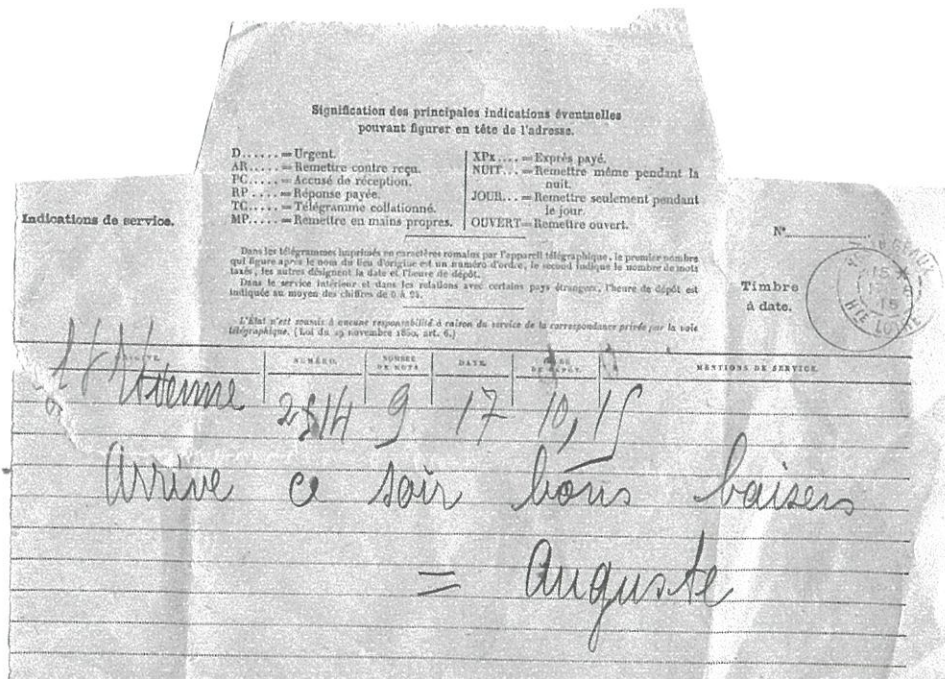 Signification des principales indications éventuelles
pouvant figurer en tête de l'adresse.
D...... = Urgent.
AR..... = Remettre contre reçu.
PC..... = Accusé de réception.
RP..... = Réponse payée.
TC..... = Télégramme collationné.
MP..... = Remettre en mains propres.
XPx.... = Exprès payé.
NUIT... = Remettre même pendant la
nuit.
JOUR... = Remettre seulement pendant
le jour.
OUVERT = Remettre ouvert.
Indications de service.
N°
Timbre
à date.
15
15
HTE LOIRE
Dans les télégrammes imprimés en caractères romains par l'appareil télégraphique, le premier nombre
qui figure après le nom du lieu d'origine est un numéro d'ordre, le second indique le nombre de mots
taxés, les autres désignent la date et l'heure de dépôt.
Dans le service intérieur et dans les relations avec certains pays étrangers, l'heure de dépôt est
indiquée au moyen des chiffres de 0 à 24.
L'État n'est soumis à aucune responsabilité à raison du service de la correspondance privée par la voie
télégraphique. (Loi du 29 novembre 1850, art. 6.)
NUMÉRO. NOMBRE DE MOTS. DATE. MENTIONS DE SERVICE.
St Etienne 2814 9 17 10,15
Arrive ce soir bons baisers
= Auguste